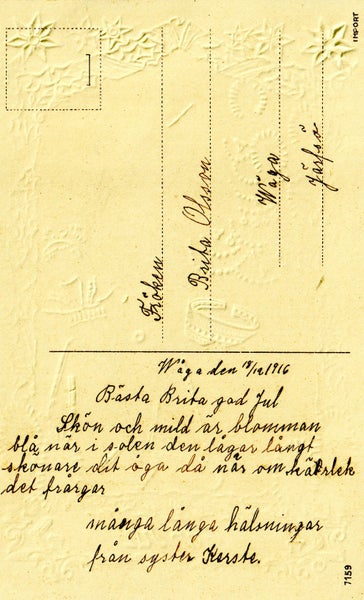 IMPORT
Fröken
Brita Olsson
Wåga
Järfsö
Wåga den 18/12 1916
Bästa Brita god Jul
Skön och mild är blomman
blå, när i solen den lågar långt
skönare dit öga då når om kärlek
det frargar
många långa hälsningar
från syster Kerste.
7159